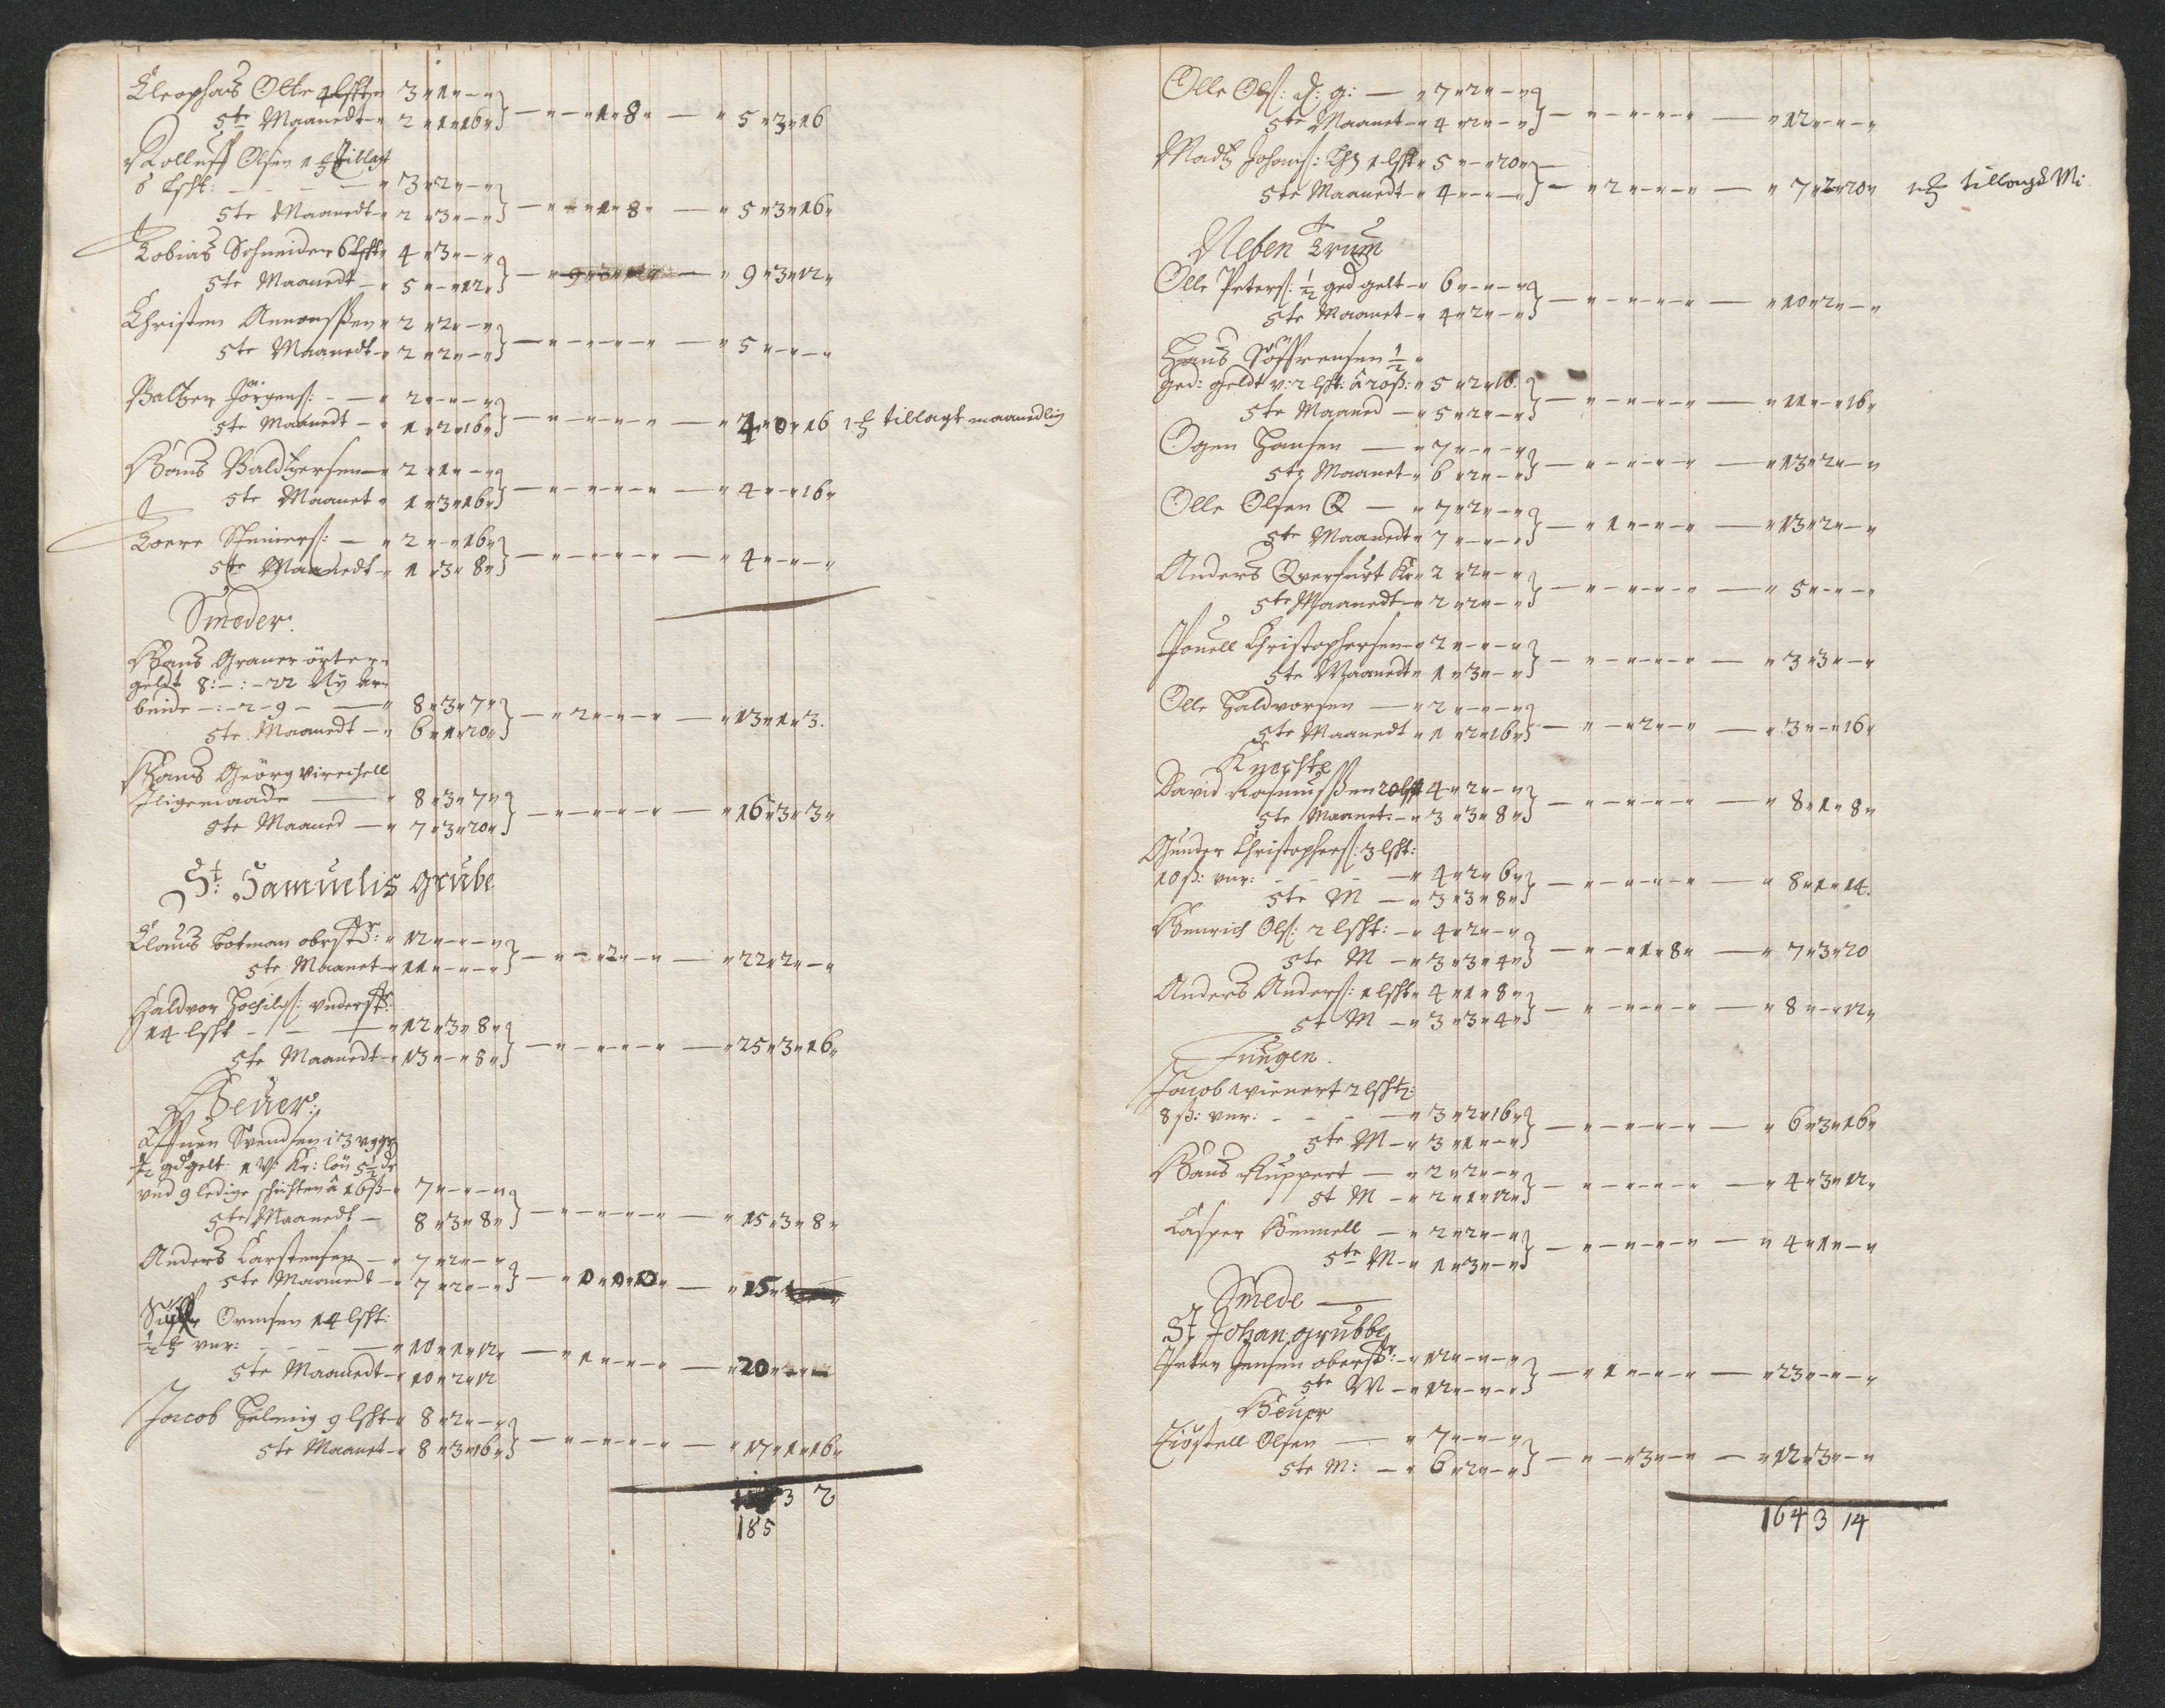 Cleophas Olle 4 lsht " 3 " 1 " - "
5te Maanedt - " 2 " 1 " 16 " } - " - " 1 " 8 " - " 5 " 3 " 16
Rolluff Olsen 1 tillagt
6 lsht: - - - - " 3 " 2 " - "
5te Maanedt - " 2 " 3 " - " } - " - " 1 " 8 " - " 5 " 3 " 16 "
Tobias Schneider 6 lsht " 4 " 3 " - "
5te Maanedt - " 5 " - " 12 " } - " 9 " 3 " 12 " - " 9 " 3 " 12 "
Christen " 2 " 2 " - "
5te Maanedt - " 2 " 2 " - " } - " - " - " - " - " 5 " - " - "
Baltzer Jörgens: - - " 2 " - " - "
5te Maanedt - " 1 " 2 " 16 " } - " - " - " - " - " 4 " 0 " 16 1 tillagt maanedlig
Hans Baldtzersen - " 2 " 1 " - "
5te Maanet " 1 " 3 " 16 " } - " - " - " - " - " 4 " - " 16 "
Toere Steiners: - " 2 " - " 16 "
5te Maanedt - " 1 " 3 " 8 " } - " - " - " - " - " 4 " - " - "
Smeder.
Hans Graner örter
geldt 8 : - : - 22 Ny Ar-
beide - : - 2 - 9 - - " 8 " 3 " 7 "
5te Maanedt - " 6 " 1 " 20 " } - " 2 " - " - " - " 13 " 1 " 3 .
Hans Geörg
Iligemaade - " 8 " 3 " 7 "
5te Maaned - " 7 " 3 " 20 " } - " - " - " - " - " 16 " 3 " 3 "
St: Samuelis grube
Claus botman oberstr: " 12 " - " - "
5te Maanet - " 11 " - " - " } - " - " 2 " - " - " 22 " 2 " - "
Haldvor understr:
14 lsht - - - " 12 " 3 " 8 "
5te Maanedt - " 13 " - " 8 " } - " - " - " - " - " 25 " 3 " 16 "
Heuer:
Svendsen i 3
1/2 gdgelt: 1 Kr: lön 5 1/2 dr
und 9 ledige schichten â 16 ß - " 7 " - " - "
5te Maanedt - 8 " 3 " 8 " } - " - " - " - " - " 15 " 3 " 8 "
Anders Carstensen - " 7 " 2 " - "
5te Maanedt - " 7 " 2 " - " } - " 0 " 0 " 0 " - " 15 "
Ormsen 14 lsht:
1/2 vnr: - - - - " 10 " 1 " 12 "
5te Maanedt - " 10 " 2 " 12 - " 1 " - " - " - " 20 " - " -
Jacob Helmig 9 lsht - " 8 " 2 " - "
5te Maanet - " 8 " 3 " 16 " } - " - " - " - " - " 17 " 1 " 16 "
3 2
185
Olle Ols: d: g: - " 7 " 2 " - "
5te Maanet - " 4 " 2 " - " } - " - " - " - " - " 12 " - " - "
Madtz Johans: 1 lsht " 5 " - " 20 "
5te Maanedt - " 4 " - " - " } - " 2 " - " - " - " 7 " 2 " 20 " 1 tillagt M:
Neben Trum
Olle Peters: 1/2 ged gelt - " 6 " - " - "
5te Maanet - " 4 " 2 " - " } - " - " - " - " - " 10 " 2 " - "
Hans Söffrensen 1/2 "
ged: geldt v: 2 lsht: â 20 ß: " 5 " 2 " 16 "
5te Maaned - " 5 " 2 " - " } - " - " - " - " - " 11 " - " 16 "
Ogen Hansen - " 7 " - " - "
5te Maanet - " 6 " 2 " - " } - " - " - " - " - " 13 " 2 " - "
Olle Olsen Q - " 7 " 2 " - "
5te Maanedt " 7 " - " - " } - " 1 " - " - " - " 13 " 2 " - "
Anders Qverfurt Kr " 2 " 2 " - "
5te Maanedt - " 2 " 2 " - " } - " - " - " - " - " 5 " - " - "
Pouell Christophersen - " 2 " - " - "
5te Maanedt " 1 " 3 " - " } - " - " - " - " - " 3 " 3 " - "
Olle Haldvorsen - " 2 " - " - "
5te Maanedt " 1 " 2 " 16 " } - " - " 2 " - " - " 3 " - " 16 "
Knechte
David Rasmussen 20 lsht 4 " 2 " - "
5te Maanet: - " 3 " 3 " 8 " } - " - " - " - " - " 8 " 1 " 8 "
Gunder Christophers: 3 lsht:
10 ß: vnr: - - - - " 4 " 2 " 6 "
5te M - " 3 " 3 " 8 " } - " - " - " - " - " 8 " 1 " 14 .
Henrich Ols: 2 lsht: - " 4 " 2 " - "
5te M - " 3 " 3 " 4 " } - " - " 1 " 8 " - " 7 " 3 " 20
Anders Anders: 1 lsht " 4 " 1 " 8 "
5t M - " 3 " 3 " 4 " } - " - " - " - " - " 8 " - " 12 "
Jungen.
Jacob wienert 2 lsht:
8 ß: vnr: - - - - " 3 " 2 " 16 "
5te M - " 3 " 1 " - " } - " - " - " - " - " 6 " 3 " 16 "
Hans Ruppert - " 2 " 2 " - "
5t M - " 2 " 1 " 12 " } - " - " - " - " - " 4 " 3 " 12 "
Casper Hennell - " 2 " 2 " - "
5te M - " 1 " 3 " - " } - " - " - " - " - " 4 " 1 " - "
Smede -
St Johan: grubbe
Peter Jensen oberstr: - " 12 " - " - "
5te M - " 12 " - " - " } - " 1 " - " - " - " 23 " - " - "
Heuer
Kiöstell Olsen - " 7 " - " - "
5te M: - " 6 " 2 " - " } - " - " 3 " - " - " 12 " 3 " - "
164 3 14